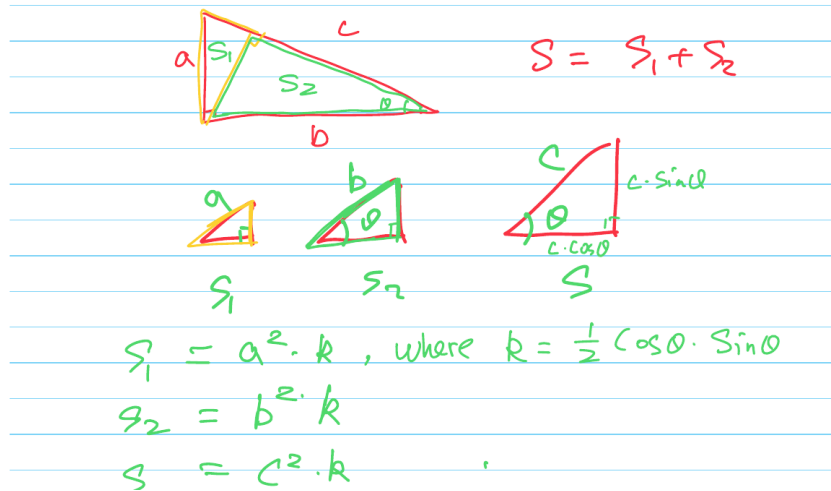 c
a S₁ S₂ θ
b
S = S₁ + S₂
a b θ C θ c·sinθ
c·cosθ
S₁ S₂ S
S₁ = a²·k , where k = ½ Cosθ·Sinθ
S₂ = b²·k
S = C²·k